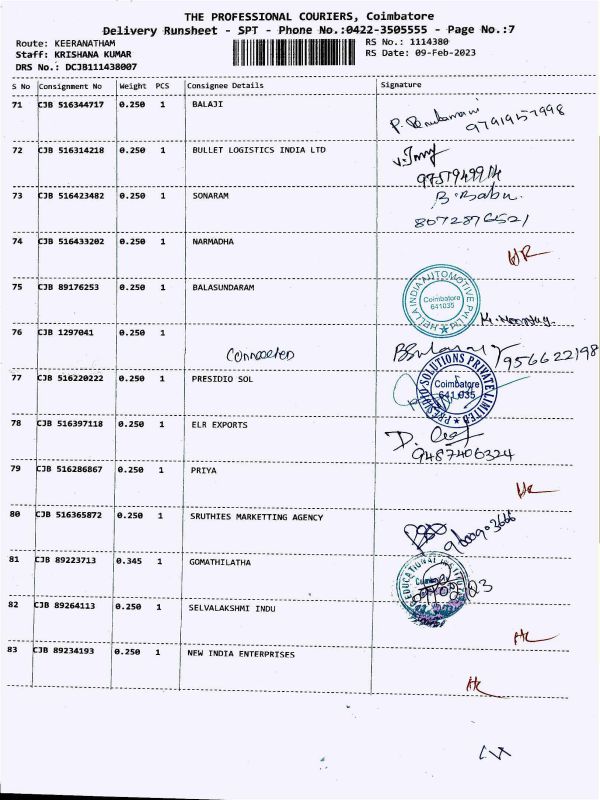 THE PROFESSIONAL COURIERS, Coimbatore
Delivery Runsheet - SPT - Phone No.:0422-3505555 - Page No.:7
Route: KEERANATHAM
Staff: KRISHANA KUMAR
DRS No.: DCJB111438007
RS No.: 1114380
RS Date: 09-Feb-2023
S No Consignment No Weight PCS Consignee Details Signature
71 CJB 516344717 0.250 1 BALAJI
9791957998
72 CJB 516314218 0.250 1 BULLET LOGISTICS INDIA LTD
73 CJB 516423482 0.250 1 SONARAM B. Babu
8072876521
74 CJB 516433202 0.250 1 NARMADHA
75 CJB 89176253 0.250 1 BALASUNDARAM
HELLA INDIA AUTOMOTIVE PVT LTD
Coimbatore
641035
76 CJB 1297041 0.250 1
Connected
9566622198
77 CJB 516220222 0.250 1 PRESIDIO SOL
PRESIDIO SOLUTIONS PRIVATE LIMITED
Coimbatore
641 035
78 CJB 516397118 0.250 1 ELR EXPORTS
9487406324
79 CJB 516286867 0.250 1 PRIYA
80 CJB 516365872 0.250 1 SRUTHIES MARKETTING AGENCY
81 CJB 89223713 0.345 1 GOMATHILATHA
EDUCATIONAL
82 CJB 89264113 0.250 1 SELVALAKSHMI INDU
83 CJB 89234193 0.250 1 NEW INDIA ENTERPRISES